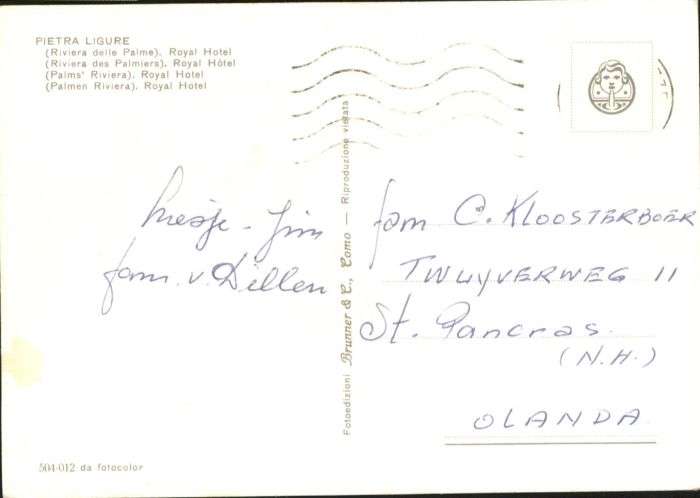 PIETRA LIGURE
(Riviera delle Palme). Royal Hotel
(Riviera des Palmiers). Royal Hôtel
(Palms' Riviera). Royal Hotel
(Palmen Riviera). Royal Hotel
Jim
fam. v. Dillen
Fotoedizioni Brunner & C., Como — Riproduzione vietata
fam C. KLOOSTERBOER
TWUYVERWEG 11
St. Pancras.
(N.H.)
OLANDA
504-012 da fotocolor